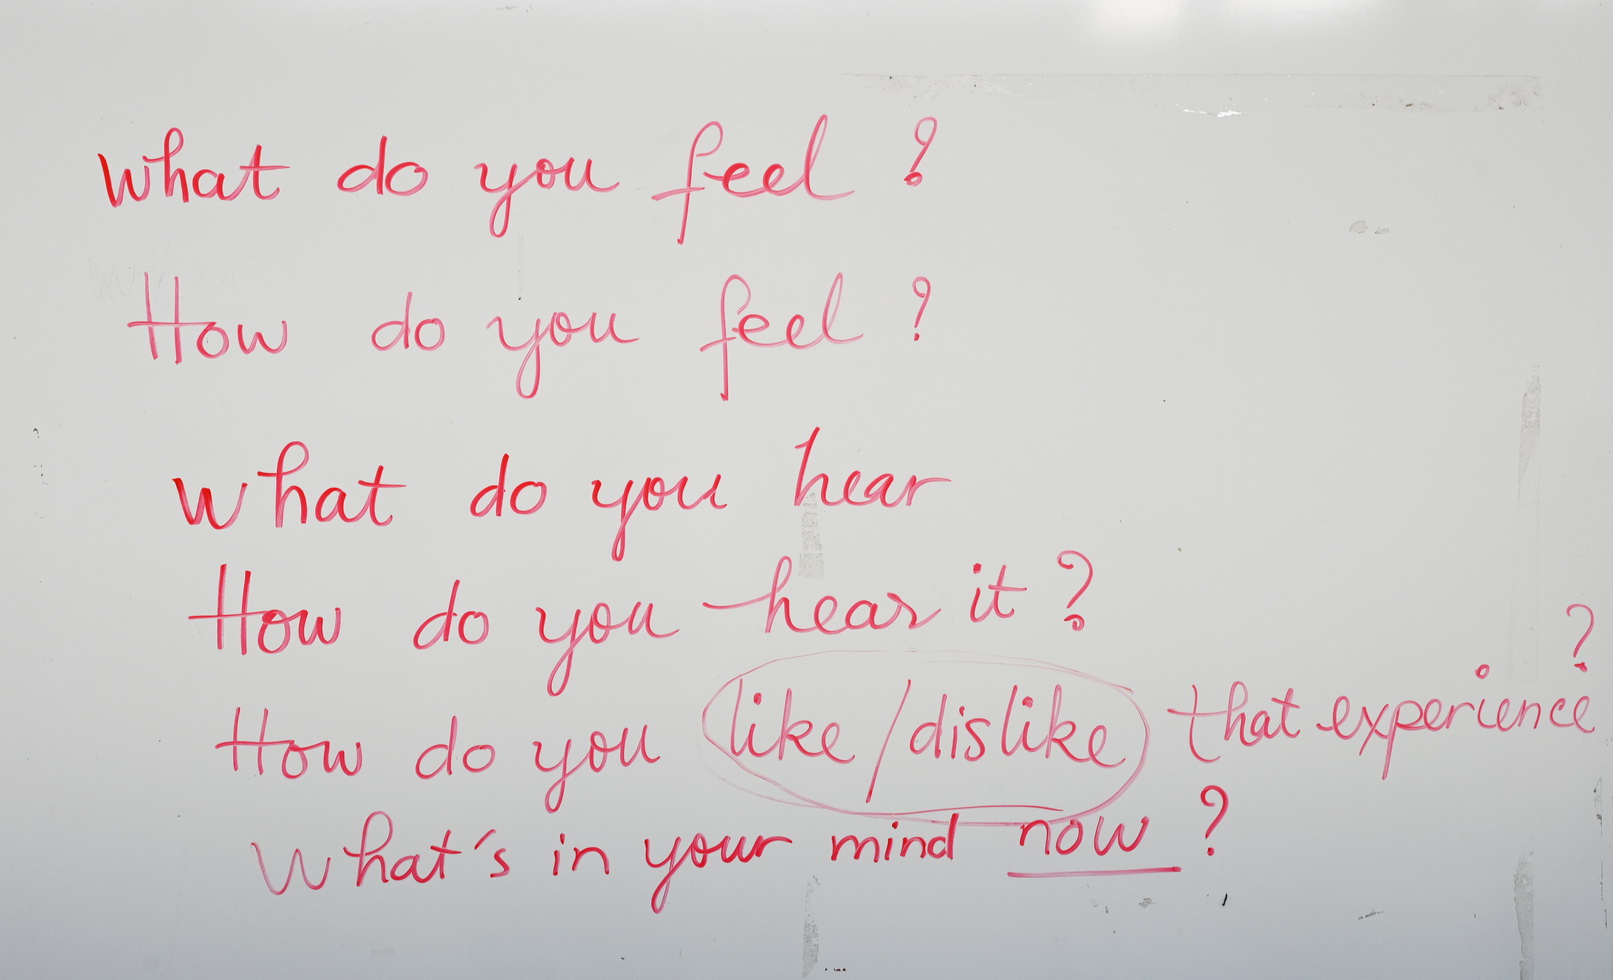 What do you feel ?
How do you feel ?
What do you hear
How do you hear it ?
How do you like/dislike that experience ?
What's in your mind now ?